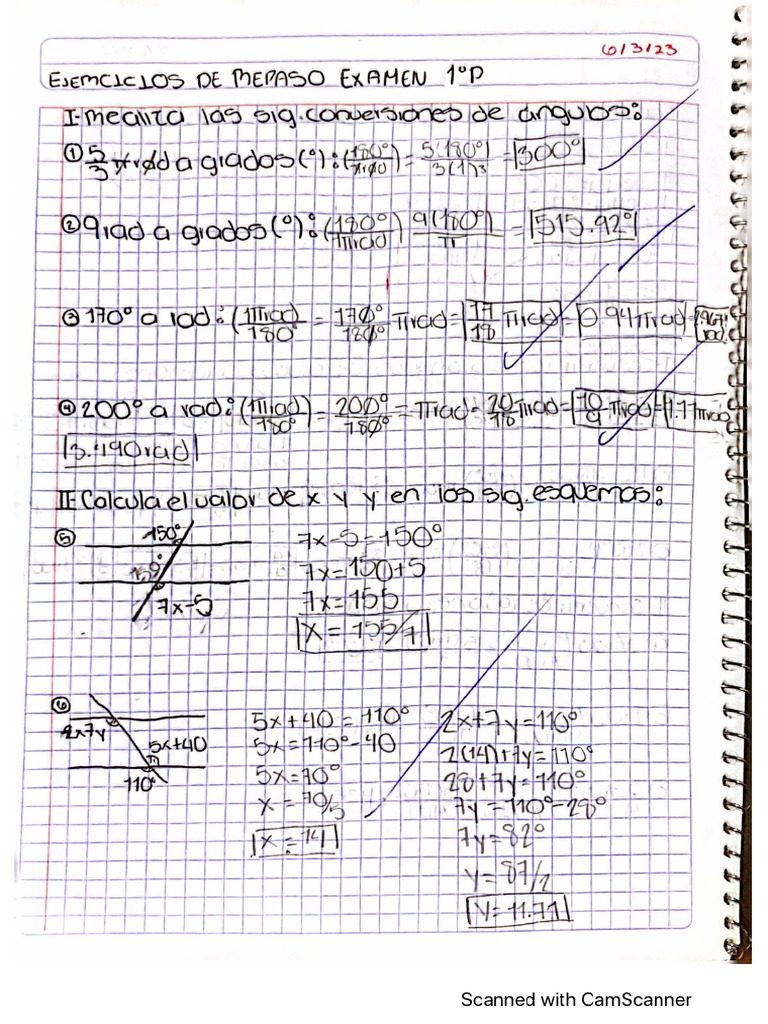 6/3/23
EJERCICIOS DE REPASO EXAMEN 1°P
I. Realiza las sig. conversiones de ángulos:
① 5/3 π rad a grados (°): (180°/π rad) = 5(180°)/3(1) = 300°
② 9 rad a grados (°): (180°/π rad) 9(180°)/π = 515.92°
③ 170° a rad: (1π rad/180°) = 170°/180° π rad = 17/18 π rad = 0.94π rad =
④ 200° a rad: (1π rad/180°) = 200°/180° = π rad = 20/18 π rad = 10/9 π rad = 1.11π rad
3.490 rad
II. Calcula el valor de x y y en los sig. esquemas:
⑤ 150°
150°
7x-5
7x-5=150°
7x=150+5
7x=155
x = 155/7
⑥
2x7y
5x+40
110°
5x+40 = 110°
5x=110°-40
5x=70°
x = 70/5
x = 14
2x+7y=110°
2(14)+7y=110°
28+7y=110°
7y=110°-28°
7y=82°
y= 87/2
y= 11.71
Scanned with CamScanner